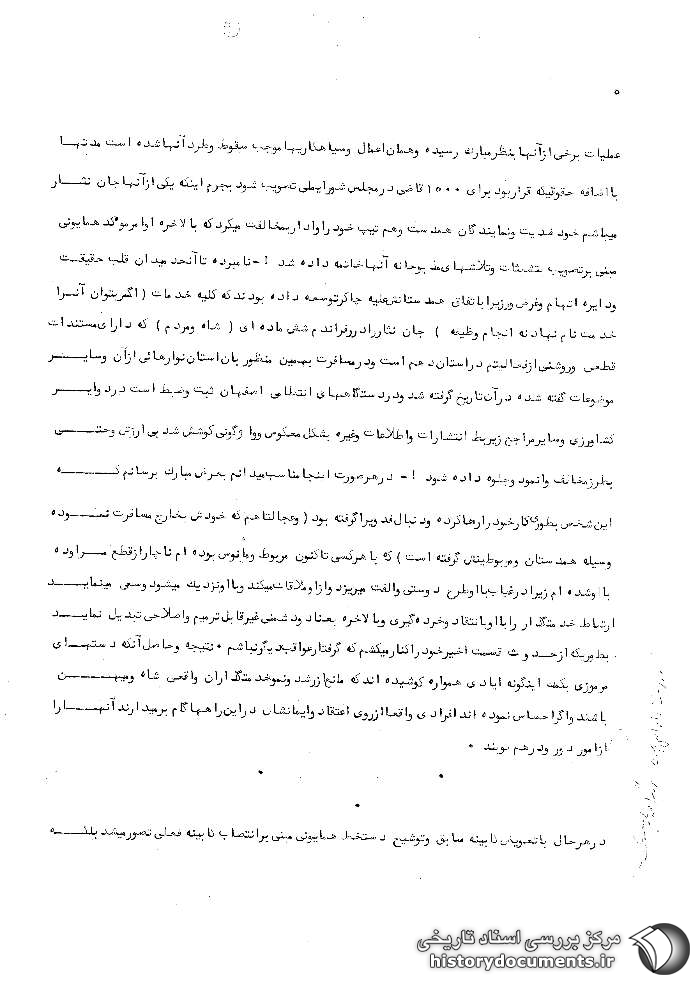 ۵
عملیات برخی از آنها بنظر مبارک رسیده و همان اعمال و سیاهکاریها موجب سقوط و طرد آنها شده است مدتها
با اضافه حقوقیکه قرار بود برای ۱۰۰۰ قاضی در مجلس شورایملی تصویب شود بجرم اینکه یکی از آنها جان نثار
میباشم خود ضدیت و نمایندگان همدست و هم تیپ خود را وادار بمخالفت میکرد که بالاخره اوامر موکد همایونی
مبنی بر تصویب بتشبثات و تلاشهای مذبوحانه آنها خاتمه داده شد !- نامبرده تا آنحد میدان قلب حقیقت
و دایره اتهام و غرض ورزیرا با تفاق همدستانش علیه چاکر توسعه داده بودند که کلیه خدمات ( اگر بتوان آنرا
خدمت نام نهاد نه انجام وظیفه ) جان نثار را در رفراندم شش ماده ای ( شاه و مردم ) که دارای مستندات
قطعی و روشنی از فعالیتم در استان دهم است و در مسافرت بهمین منظور بان استان نوارهائی از آن و سایر
موضوعات گفته شده در آن تاریخ گرفته شد و در دستگاههای انتظامی اصفهان ثبت و ضبط است در دوایر
کشاورزی و سایر مراجع ذیربط انتشارات و اطلاعات و غیره بشکل معکوس و واژگونی کوشش شد بی ارزش و حتی
بطرز مخالف وانمود و جلوه داده شود !- در هر صورت اینجا مناسب میدانم بعرض مبارک برسانم که
این شخص بطوری کار خود را رها کرده و دنبال فدویرا گرفته بود ( و عجالتا هم که خودش بخارج مسافرت نموده
وسیله همدستان و مربوطینش گرفته است ) که با هر کسی تاکنون مربوط و مانوس بوده ام ناچار از قطع مراوده
با او شده ام زیرا در غیاب با او طرح دوستی والفت میریزد و از او ملاقات میکند و با او نزدیک میشود و سعی مینماید
ارتباط خدمتگذار را با او بانتقاد و خرده گیری و بالاخره بعناد و دشمنی غیر قابل ترمیم و اصلاحی تبدیل نماید
بطوریکه از حدوث قسمت اخیر خود را کنار میکشم که گرفتار عواقب دیگر نباشم ۰ نتیجه و حاصل آنکه دستهای
مرموزی بکمک اینگونه ایادی همواره کوشیده اند که مانع از رشد و نمو خدمتگذاران واقعی شاه و میهن
باشند و اگر احساس نموده اند افرادی واقعا از روی اعتقاد و ایمانشان در این راهها گام برمیدارند آنها را
از امور دور و در هم کوبند ۰
در هر حال با تعویض کابینه سابق و توشیح دستخط همایونی مبنی بر انتصاب کابینه فعلی تصور میشد بلکه
مرکز بررسی اسناد تاریخی
historydocuments.ir